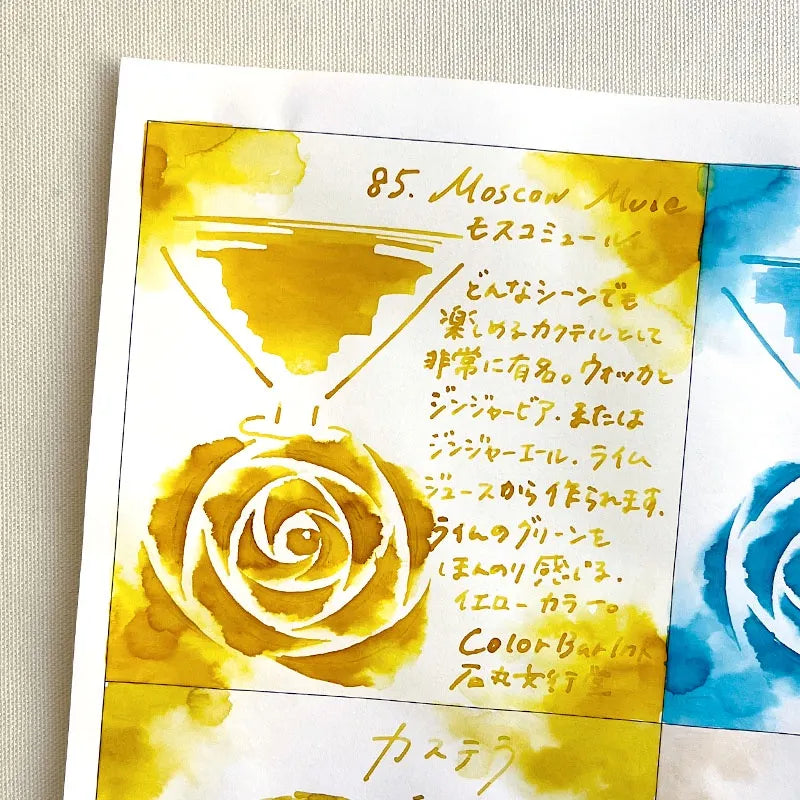 85. Moscow Mule
モスコミュール
どんなシーンでも
楽しめるカクテルとして
非常に有名。ウォッカと
ジンジャービア.または
ジンジャーエール.ライム
ジュースから作られます.
ライムのグリーンを
ほんのり感じる.
イエローカラー。
Color Bar Ink
石丸文行堂
カステラ